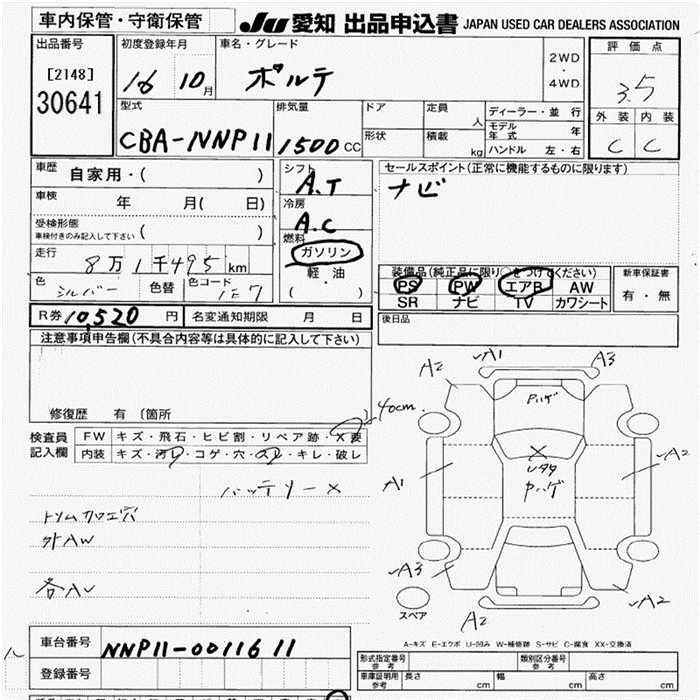 車内保管・守衛保管
JU 愛知 出品申込書 JAPAN USED CAR DEALERS ASSOCIATION
出品番号
[2148]
30641
初度登録年月
16 10月
車名・グレード
ポルテ
2WD
・
4WD
評価点
3.5
外装 内装
C C
型式
CBA-NNP11
排気量
1500 CC
ドア
形状
定員 人
積載 kg
ディーラー・並行
モデル年式 年
ハンドル 左・右
車歴 自家用・( )
車検 年 月( 日)
受検形態
車検付きのみ記入して下さい ( )
走行 8万1千495km
色 シルバー 色替 色コード 1E7
シフト
A.T
冷房
A.C
燃料
ガソリン
軽・油
( )
セールスポイント(正常に機能するものに限ります)
ナビ
装備品(純正品に限り○をつけてください)
PS PW エアB AW
SR ナビ TV カワシート
新車保証書
有・無
R券 10,520円 名変通知期限 月 日
後日品
注意事項申告欄(不具合内容等は具体的に記入して下さい)
修復歴 有 〔箇所
検査員記入欄
FW キズ・飛石・ヒビ割・リペア跡・X要
内装 キズ・汚レ・コゲ・穴・スレ・キレ・破レ
40cm.
バッテリー×
トリムカロエ穴
外AW
各AU
A2 A1 A3
Pハゲ
A1
A2
A3
A2
A2
スペア
A-キズ E-エクボ U-凹み W-補修跡 S-サビ C-腐食 XX-交換済
車台番号 NNP11-0011611
登録番号
型式指定番号 参考
類別区分番号 参考
車庫証明用 参考 長さ cm 幅 cm 高さ cm